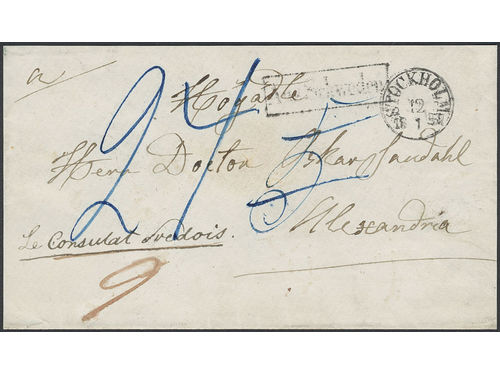 a
Högädle
Schweden
STOCKHOLM
12
1
Herr Doctor Oskar Sandahl
Alexandria
Le Consulat Svedois.
24
5
9